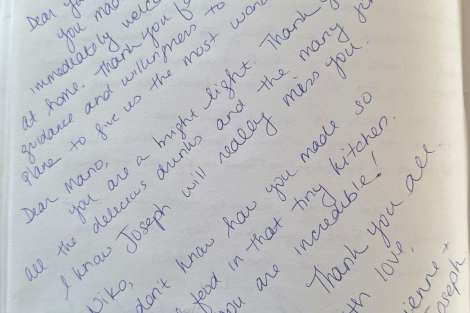 Dear
you mad
immediately welco
at home. Thank you fo
guidance and willingness to
plane to give us the most won
Dear Mano,
you are a bright light. Thank y
all the delicious drinks and the many
I know Joseph will really miss you.
Niko,
don't know how you made so
food in that tiny kitchen.
you are incredible!
Thank you all.
th love,
ienne +
Joseph